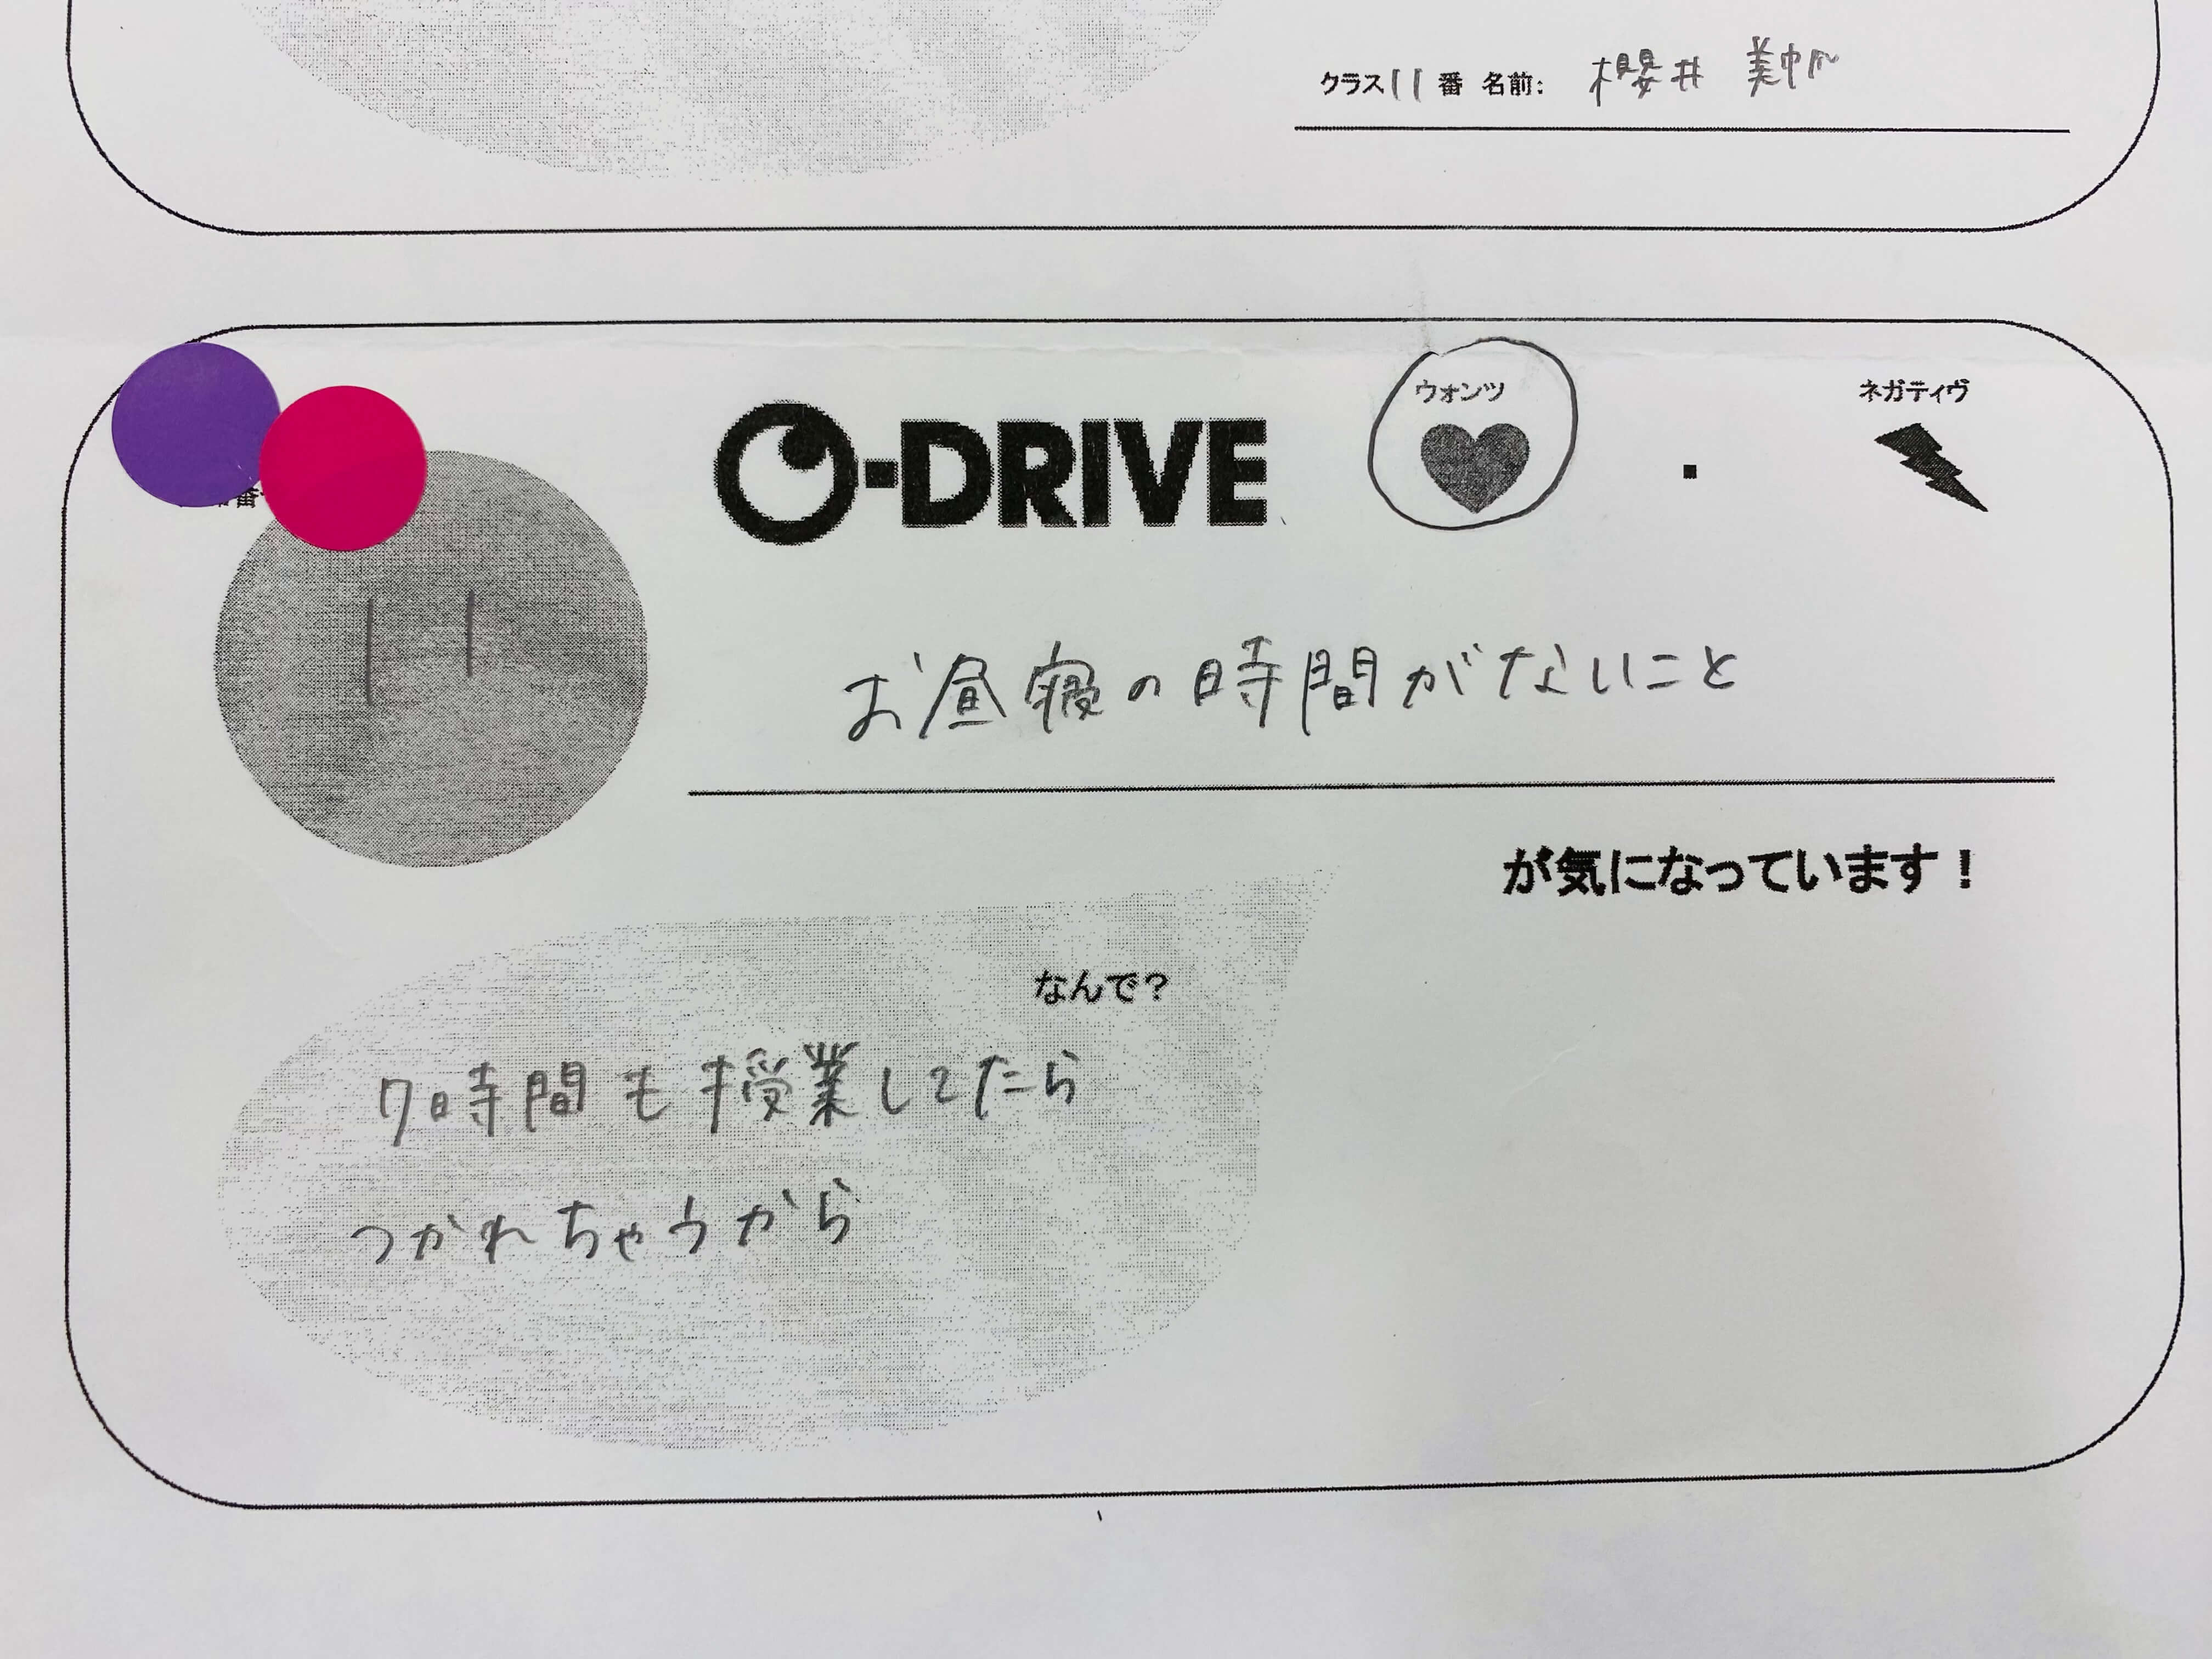 クラス11番 名前: 櫻井 美帆
O-DRIVE
ウォンツ
・
ネガティヴ
番
11
お昼寝の時間がないこと
が気になっています！
なんで？
7時間も授業してたら
つかれちゃうから